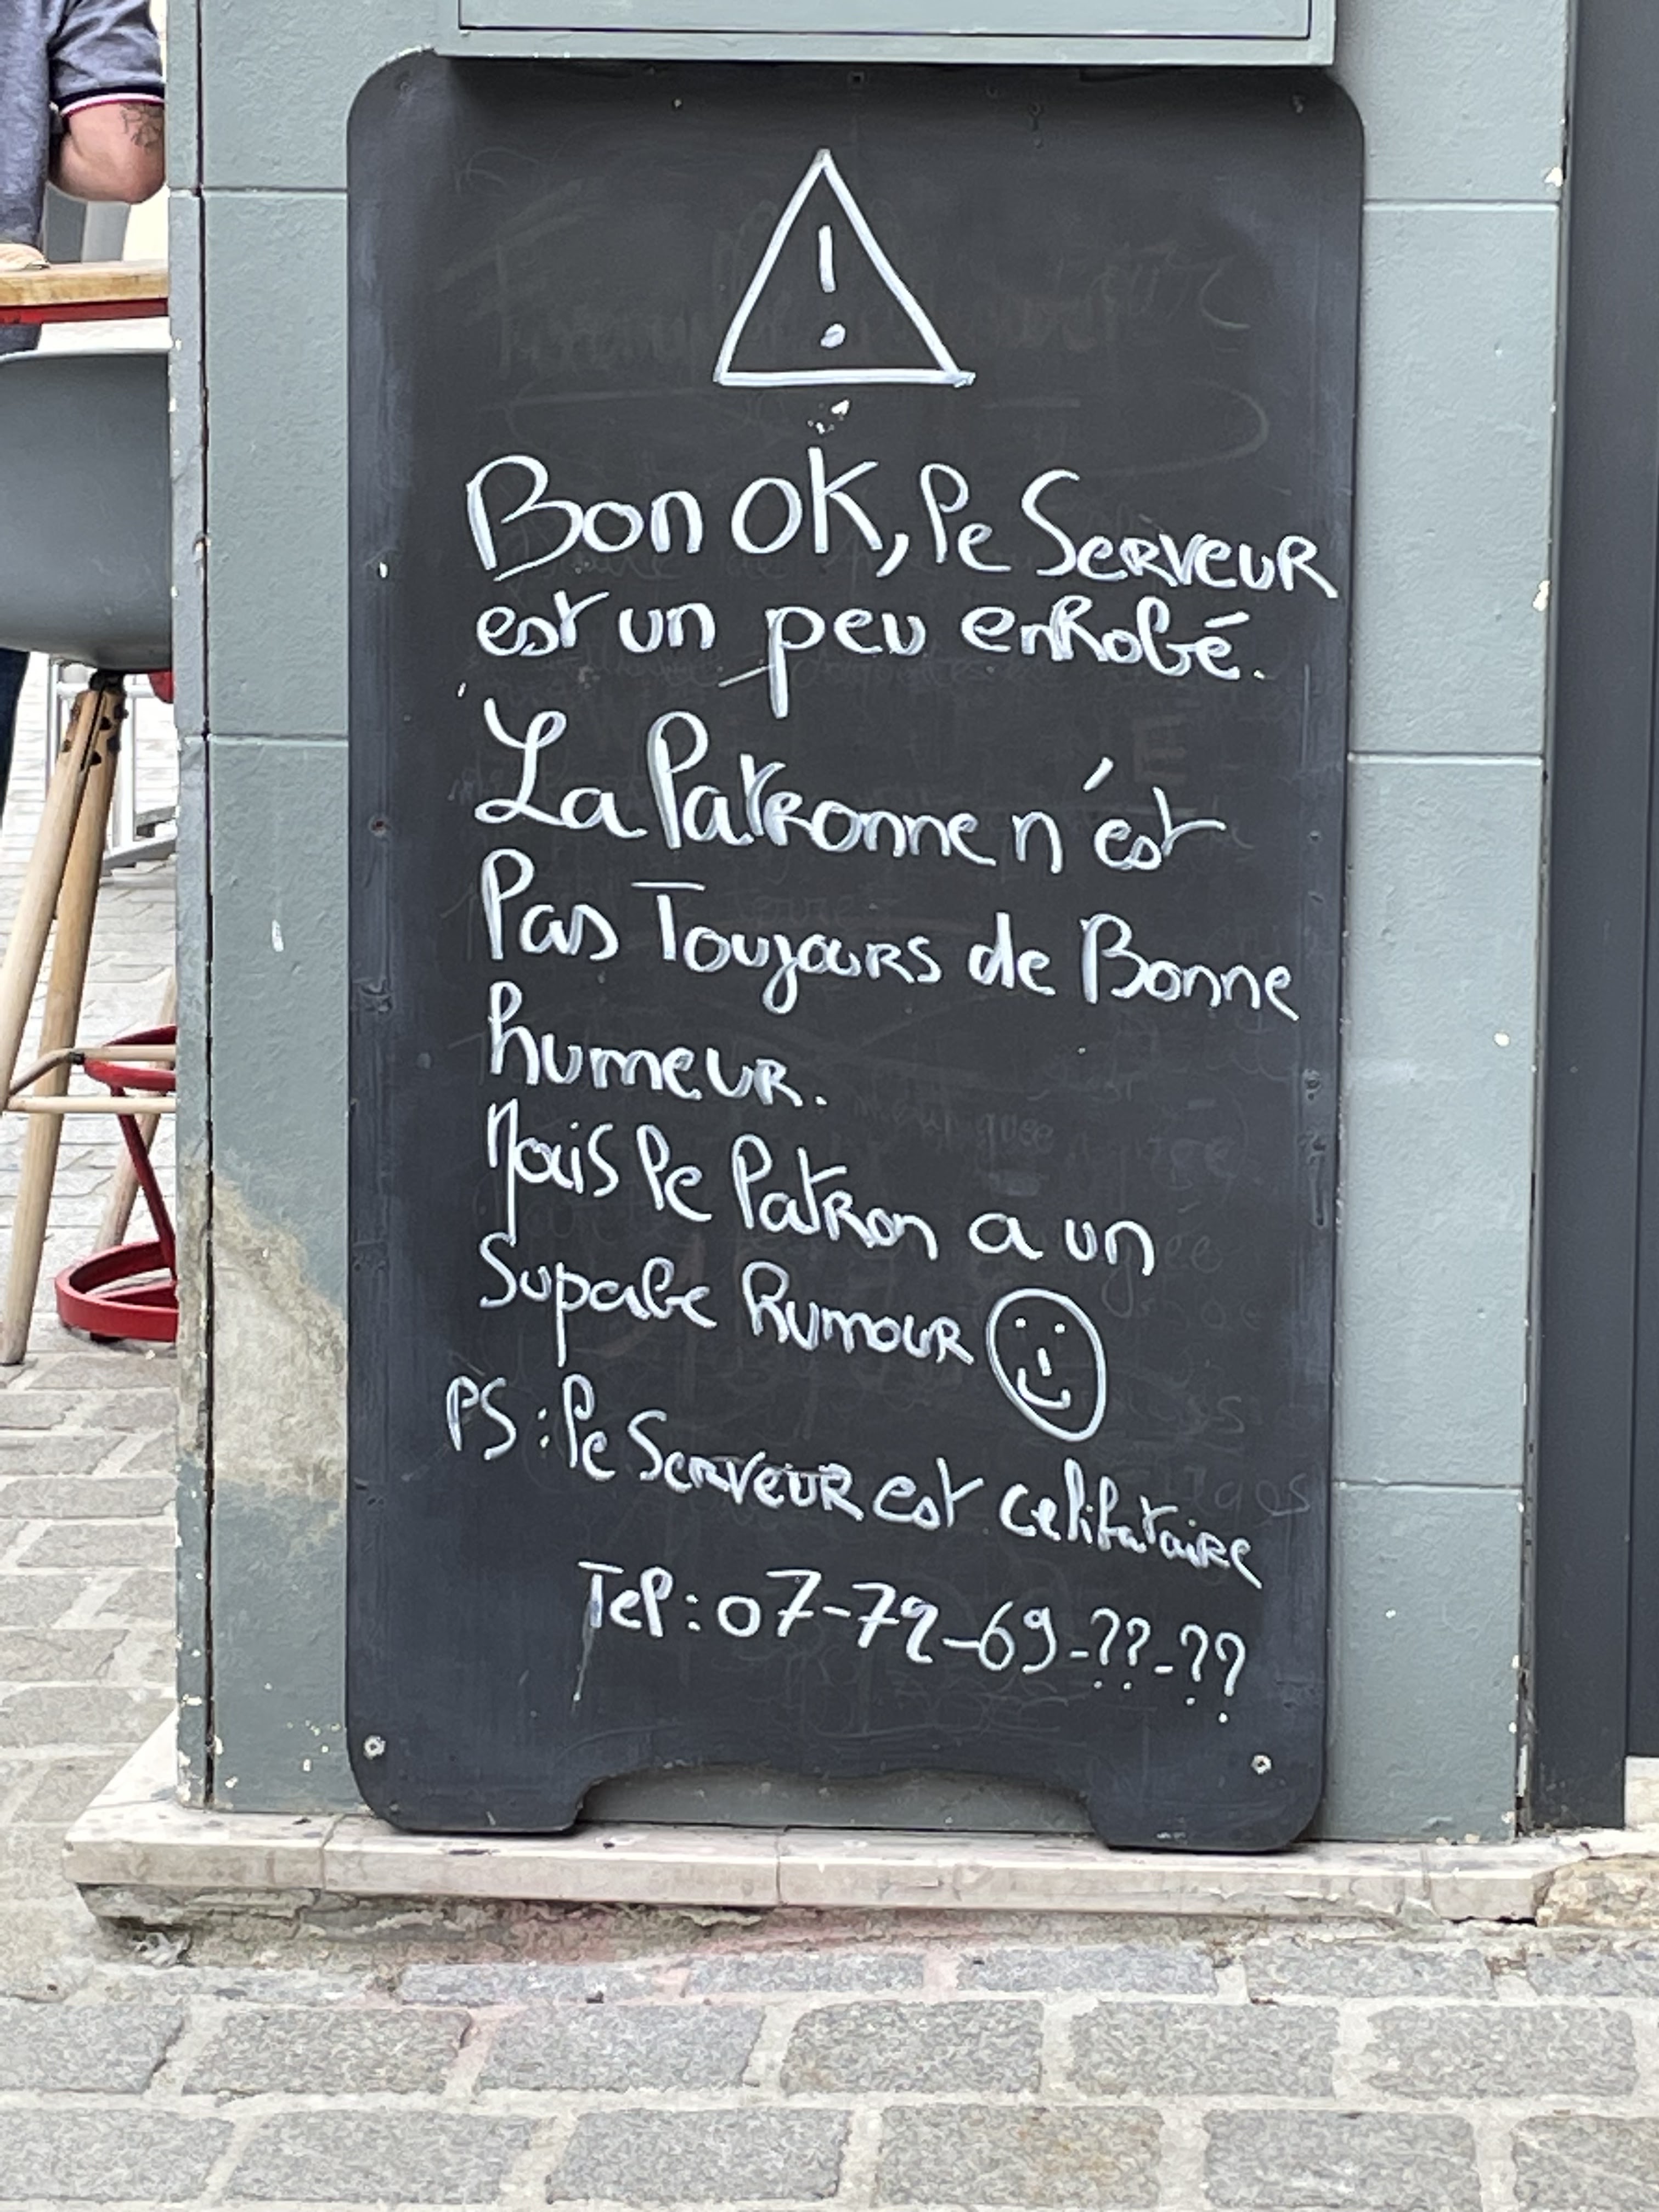 Bon OK, le Serveur
est un peu enrobé.
La Patronne n'est
Pas Toujours de Bonne
humeur.
Mais le Patron a un
Superbe humour
PS : le Serveur est celibataire
Tel : 07-72-69-??-??